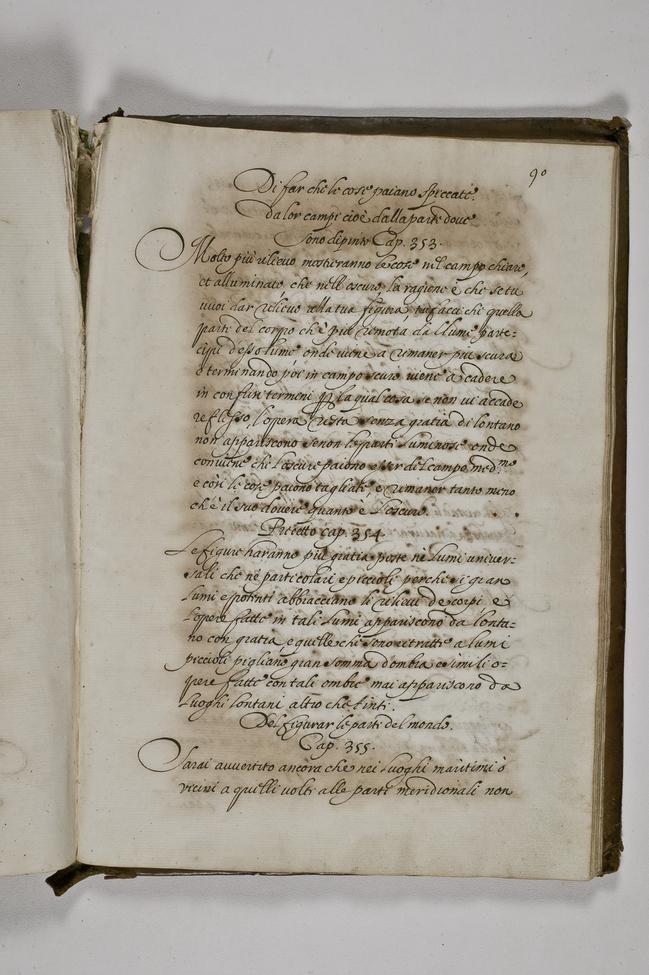 90
Di far che le cose paiano spiccate
da lor campi cioè dalla parte doue
sono dipinte Cap. 353.
Molto più rilieuo mostreranno le cose nel campo chiaro,
et alluminato che nell oscuro, la ragione è che se tu
uuoi dar rilieuo alla tua figura, tu facci che quella
parte del corpo ch'è più remota da llume parte-
cipi d'esso lume onde uiene a rimaner piu scura
e terminando poi in campo scuro uiene a cadere
in confusi termeni la qual cosa se non ui accade
reflesso, l'opera resta senza gratia di lontano
non appariscono senon le parti luminose onde
conuiene che l'oscure paiono esser del campo med.mo
e così le cose paiono tagliate, e rimaner tanto meno
ch'è il suo douere quanto è l'oscuro.
Precetto cap. 354.
Le figure haranno più gratia poste ne lumi uniuer-
sali che nè particolari e piccioli perche i gran
lumi e potenti abbracciano li rilieui de corpi, e
l'opere fatte in tali lumi appariscono da lonta-
no con gratia, e quelle che sono ritratte a lumi
piccioli pigliano gran somma d'ombra e simili o-
pere fatte con tali ombre mai appariscono da
luoghi lontani altro che tinti.
Del figurar le parti del mondo.
Cap. 355.
Sarai auuertito ancora che nei luoghi maritimi ò
vicini a quelli volti alle parti meridionali non